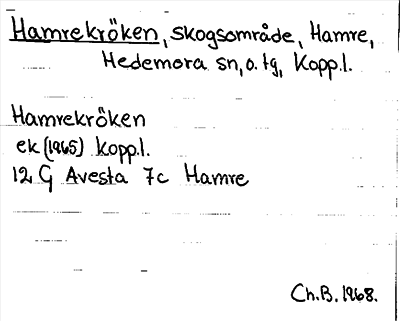 Hamrekröken, skogsområde, Hamre,
Hedemora sn, o. tg, Kopp.l.
Hamrekröken
ek (1965) Kopp.l.
12 G Avesta 7c Hamre
Ch.B. 1968.